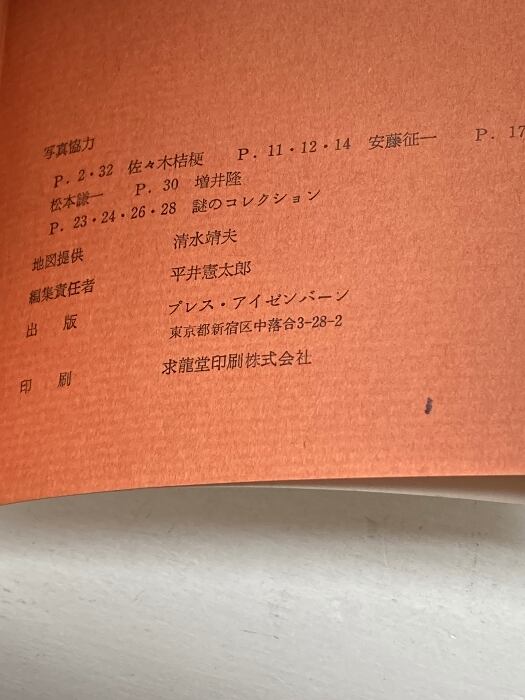 写真協力
P. 2・32 佐々木桔梗 P. 11・12・14 安藤征一 P. 17
松本謙一 P. 30 増井隆
P. 23・24・26・28 謎のコレクション
地図提供 清水靖夫
編集責任者 平井憲太郎
出版 プレス・アイゼンバーン
東京都新宿区中落合3-28-2
印刷 求龍堂印刷株式会社